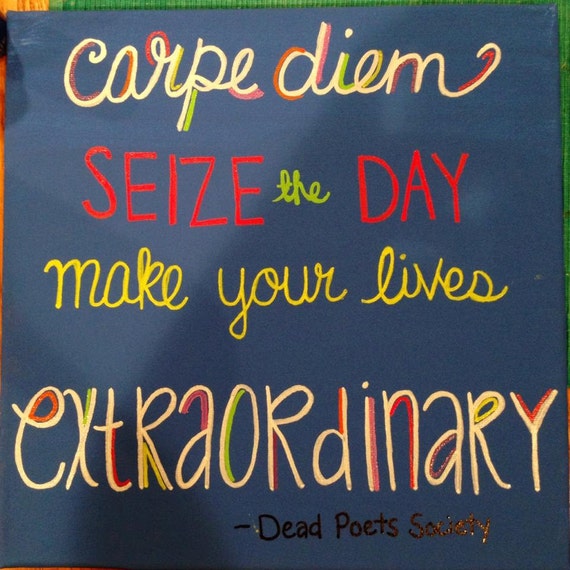 carpe diem
SEIZE the DAY
make your lives
extRaORdinaRY
-Dead Poets Society